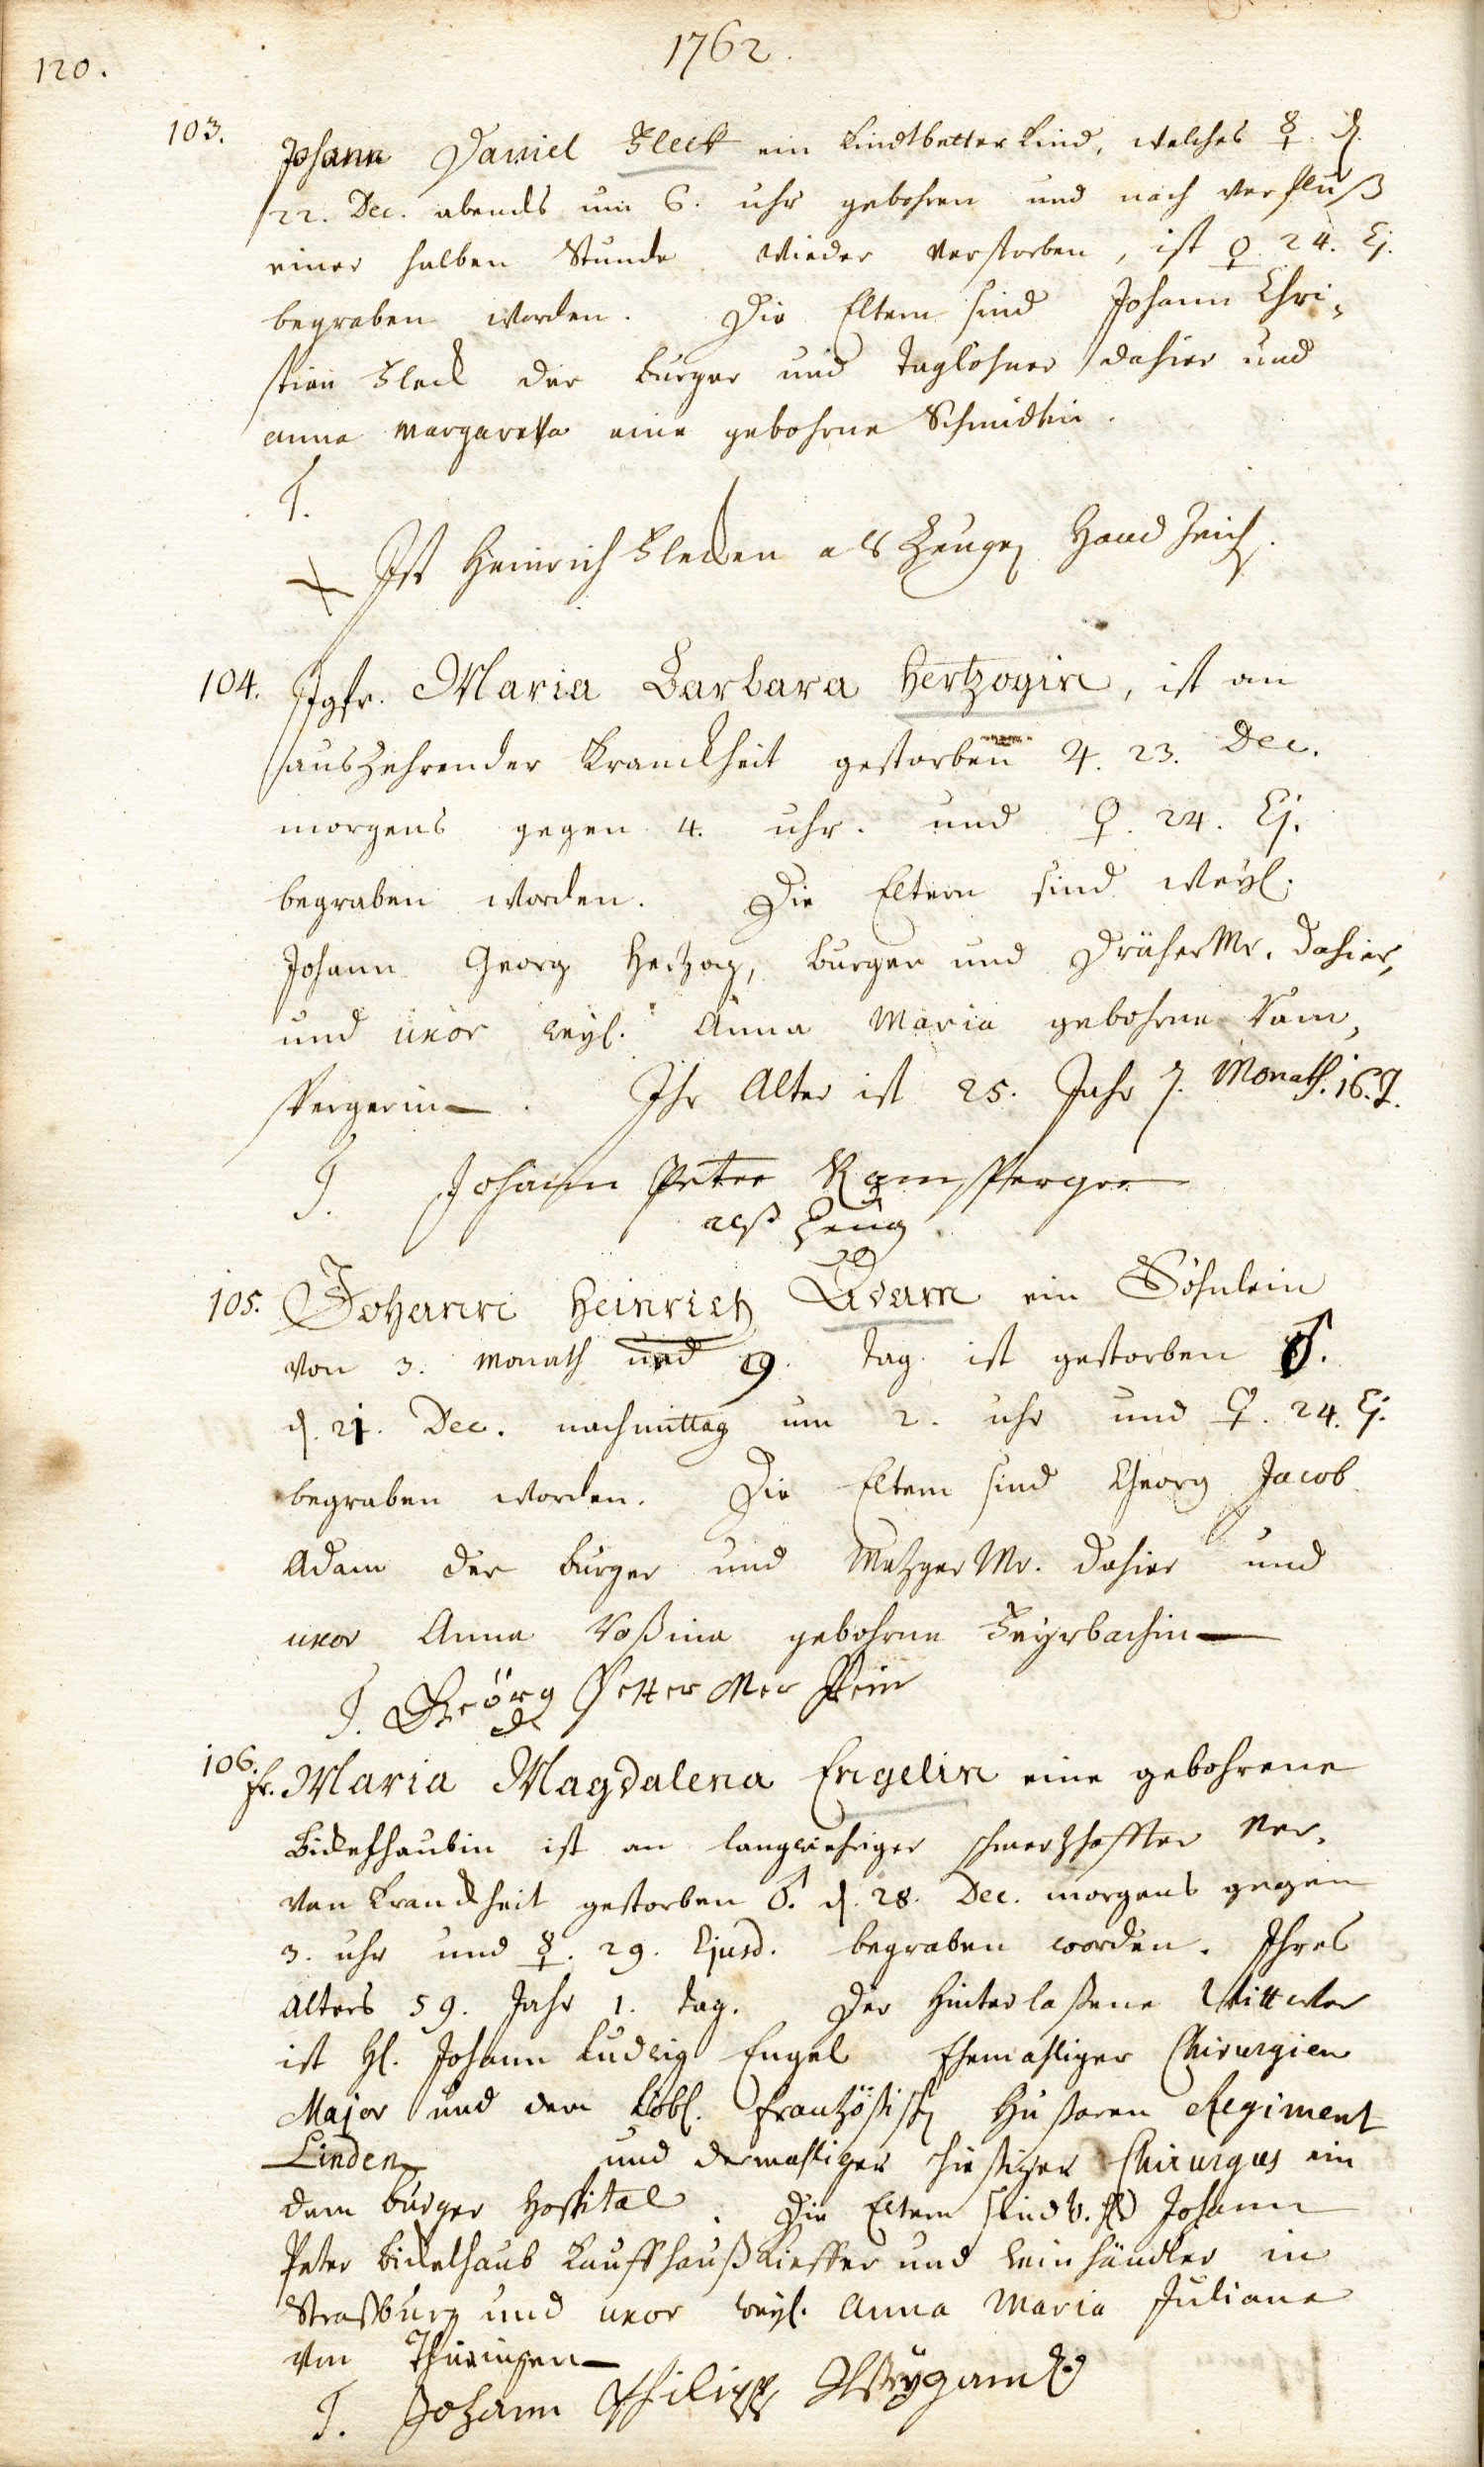 120.
1762.
103.
Johann Daniel Fleck ein Kindtbetter Kind, welches ☿ d.
22. Dec. abends um 6. uhr gebohren und nach verfluß
einer halben Stunde wieder verstorben, ist ♀ 24. Ej.
begraben worden. Die Eltern sind Johann Chri-
stian Fleck der burger und Taglöhner dahier und
anna margareta eine gebohrne Schmidtin.
T.
Ist Heinrich Flecken als Zeugen Handzeich.
104. Jgfr. Maria Barbara Hertzogin, ist an
auszehrender Kranckheit gestorben ♃. 23. Dec.
morgens gegen 4. uhr. und ♀. 24. Ej.
begraben worden. Die Eltern sind weyl.
Johann Georg Hertzog, burger und Dräher Mr. dahier,
und uxor weyl. Anna Maria gebohrne Ram-
spergerin. Ihr Alter ist 25. Jahr 7. Monath. 16. T.
T. Johann Peter Ramsperger
alß Zeug
105. Johann Heinrich Adam ein Söhnlein
von 3. monath und 9. tag ist gestorben ♂.
d. 21. Dec. nachmittag um 2. uhr und ♀. 24. Ej.
begraben worden. Die Eltern sind Georg Jacob
Adam der burger und Metzger Mr. dahier und
uxor Anna Rosina gebohrne Feyrbachin
T. Georg Petter
106. Fr. Maria Magdalena Engelin eine gebohrene
Bickelhaubin ist an langwieriger schmertzhaffter Ner-
ven Kranckheit gestorben ♂. d. 28. Dec. morgens gegen
3. uhr und ☿. 29. Ejusd. begraben worden. Ihres
Alters 59. Jahr 1. tag. Der hinterlaßene Wittwer
ist H. Johann Ludwig Engel Ehemahliger Chirurgien
Major und dem Löbl. Frantzößisch Hußaren Regiment
Linden und dermahliger hießiger Chirurgus ein
dem burger Hospital. Die Eltern sind Johann
Peter Bickelhaub Kauffhauß Kieffer und weinhändler in
Straßburg und uxor weyl. Anna Maria Juliana
von Thüringen
T. Johann Philipp Weygandt